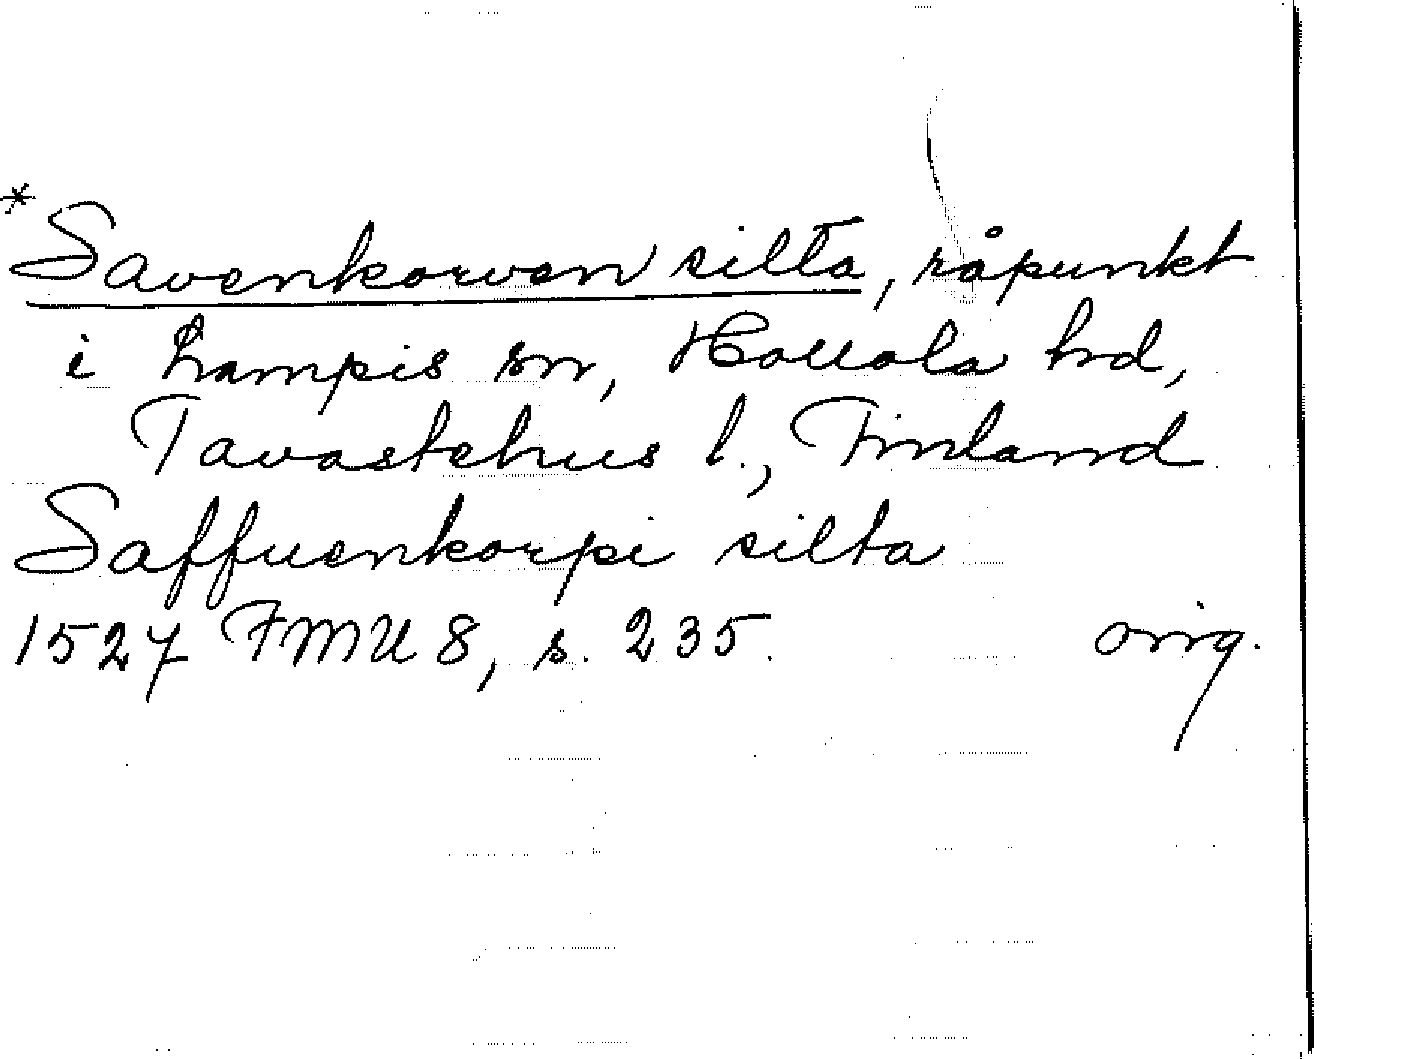 *Savenkorven silta, råpunkt
i Lampis sn, Hollola hd,
Tavastehus l., Finland
Saffuenkorpi silta
1527 FMU 8, s. 235. orig.